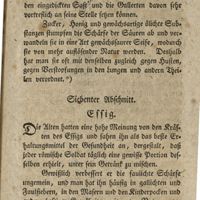 den eingedickten Saft und die Gallerten davon sehr
vortreflich an seine Stelle setzen können.
Zucker, Honig und gewächsartige ölichte Sub-
stanzen stumpfen die Schärfe der Säuren ab und ver-
wandeln sie in eine Art gewächssaurer Seife, wodurch
sie von mehr auflösender Natur werden. Deshalb
hat man sie oft mit demselben zugleich gegen Husten,
gegen Verstopfungen in den Lungen und andern Thei-
len verordnet.")
Siebenter Abschnitt.
Essig.
Die Alten hatten eine hohe Meinung von den Kräf-
ten des Essigs und sahen ihn als das beste Er-
haltungsmittel der Gesundheit an, dergestalt, daß
jeder römische Soldat täglich eine gewisse Portion des-
selben erhielt, unter sein Getränk zu mischen.
Gewißlich verbessert er die faulichte Schärfe
ungemein, und man hat ihn häufig in gallichten und
Faulfiebern, in den Masern und den Kinderpocken und